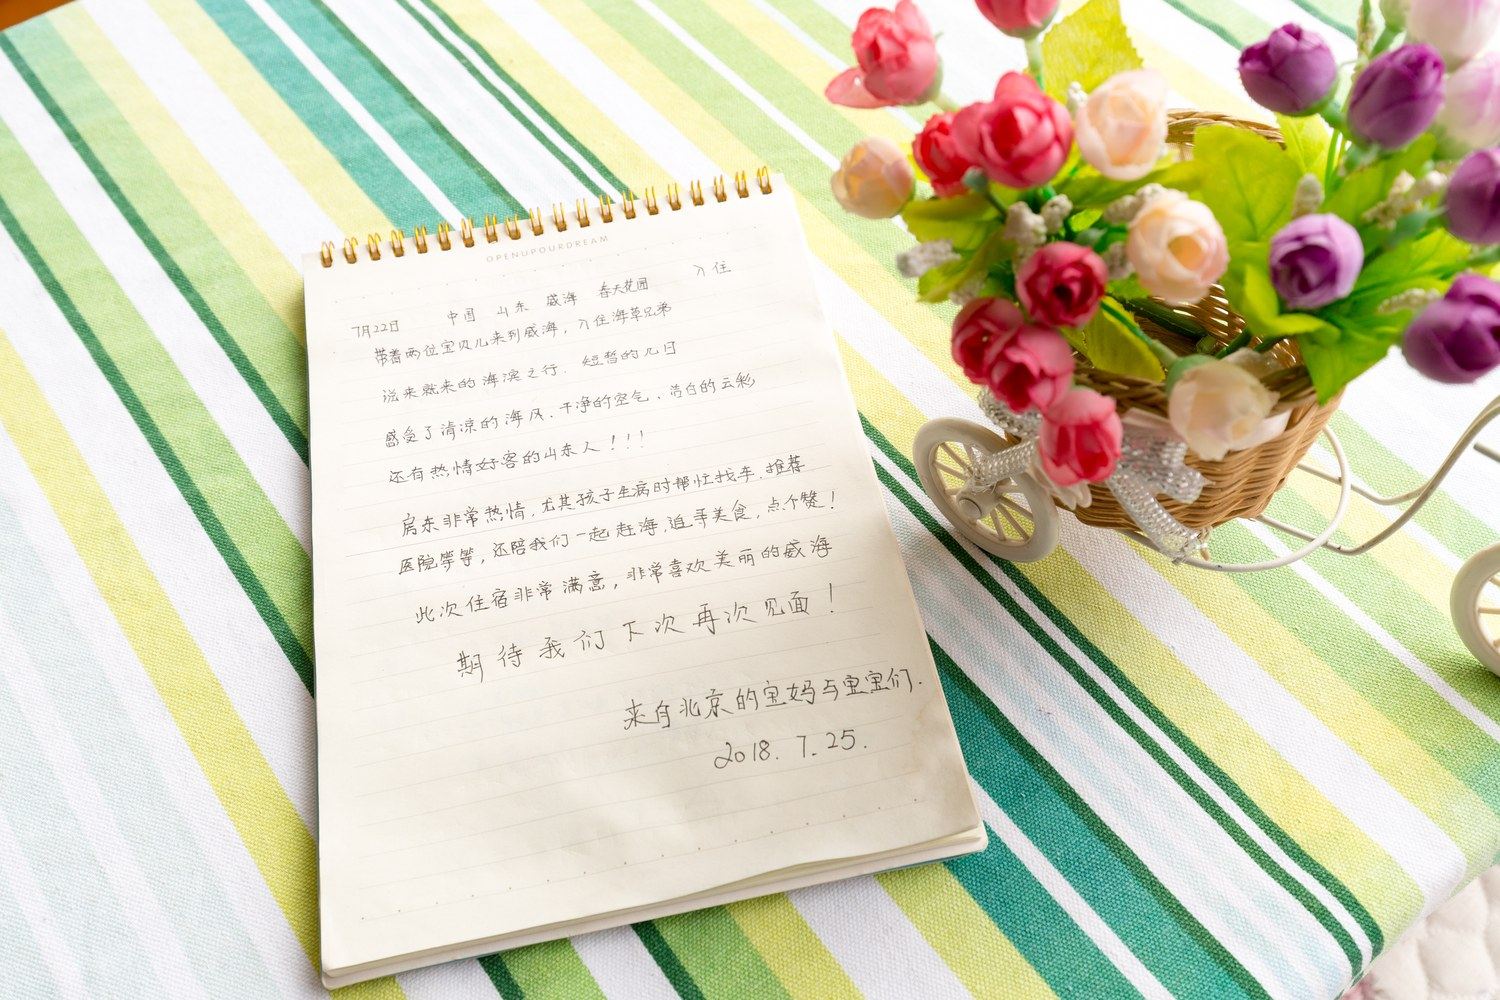 OPENUPOURDREAM
7月22日 中国 山东 威海 春天花园 入住
带着两位宝贝儿来到威海，入住海草兄弟
说来就来的海滨之行．短暂的几日
感受了清凉的海风、干净的空气、洁白的云彩
还有热情好客的山东人！！！
房东非常热情，尤其孩子生病时帮忙找车．推荐
医院等等，还陪我们一起赶海，追寻美食，点个赞！
此次住宿非常满意，非常喜欢美丽的威海
期待我们下次再次见面！
来自北京的宝妈与宝宝们．
2018．7．25．